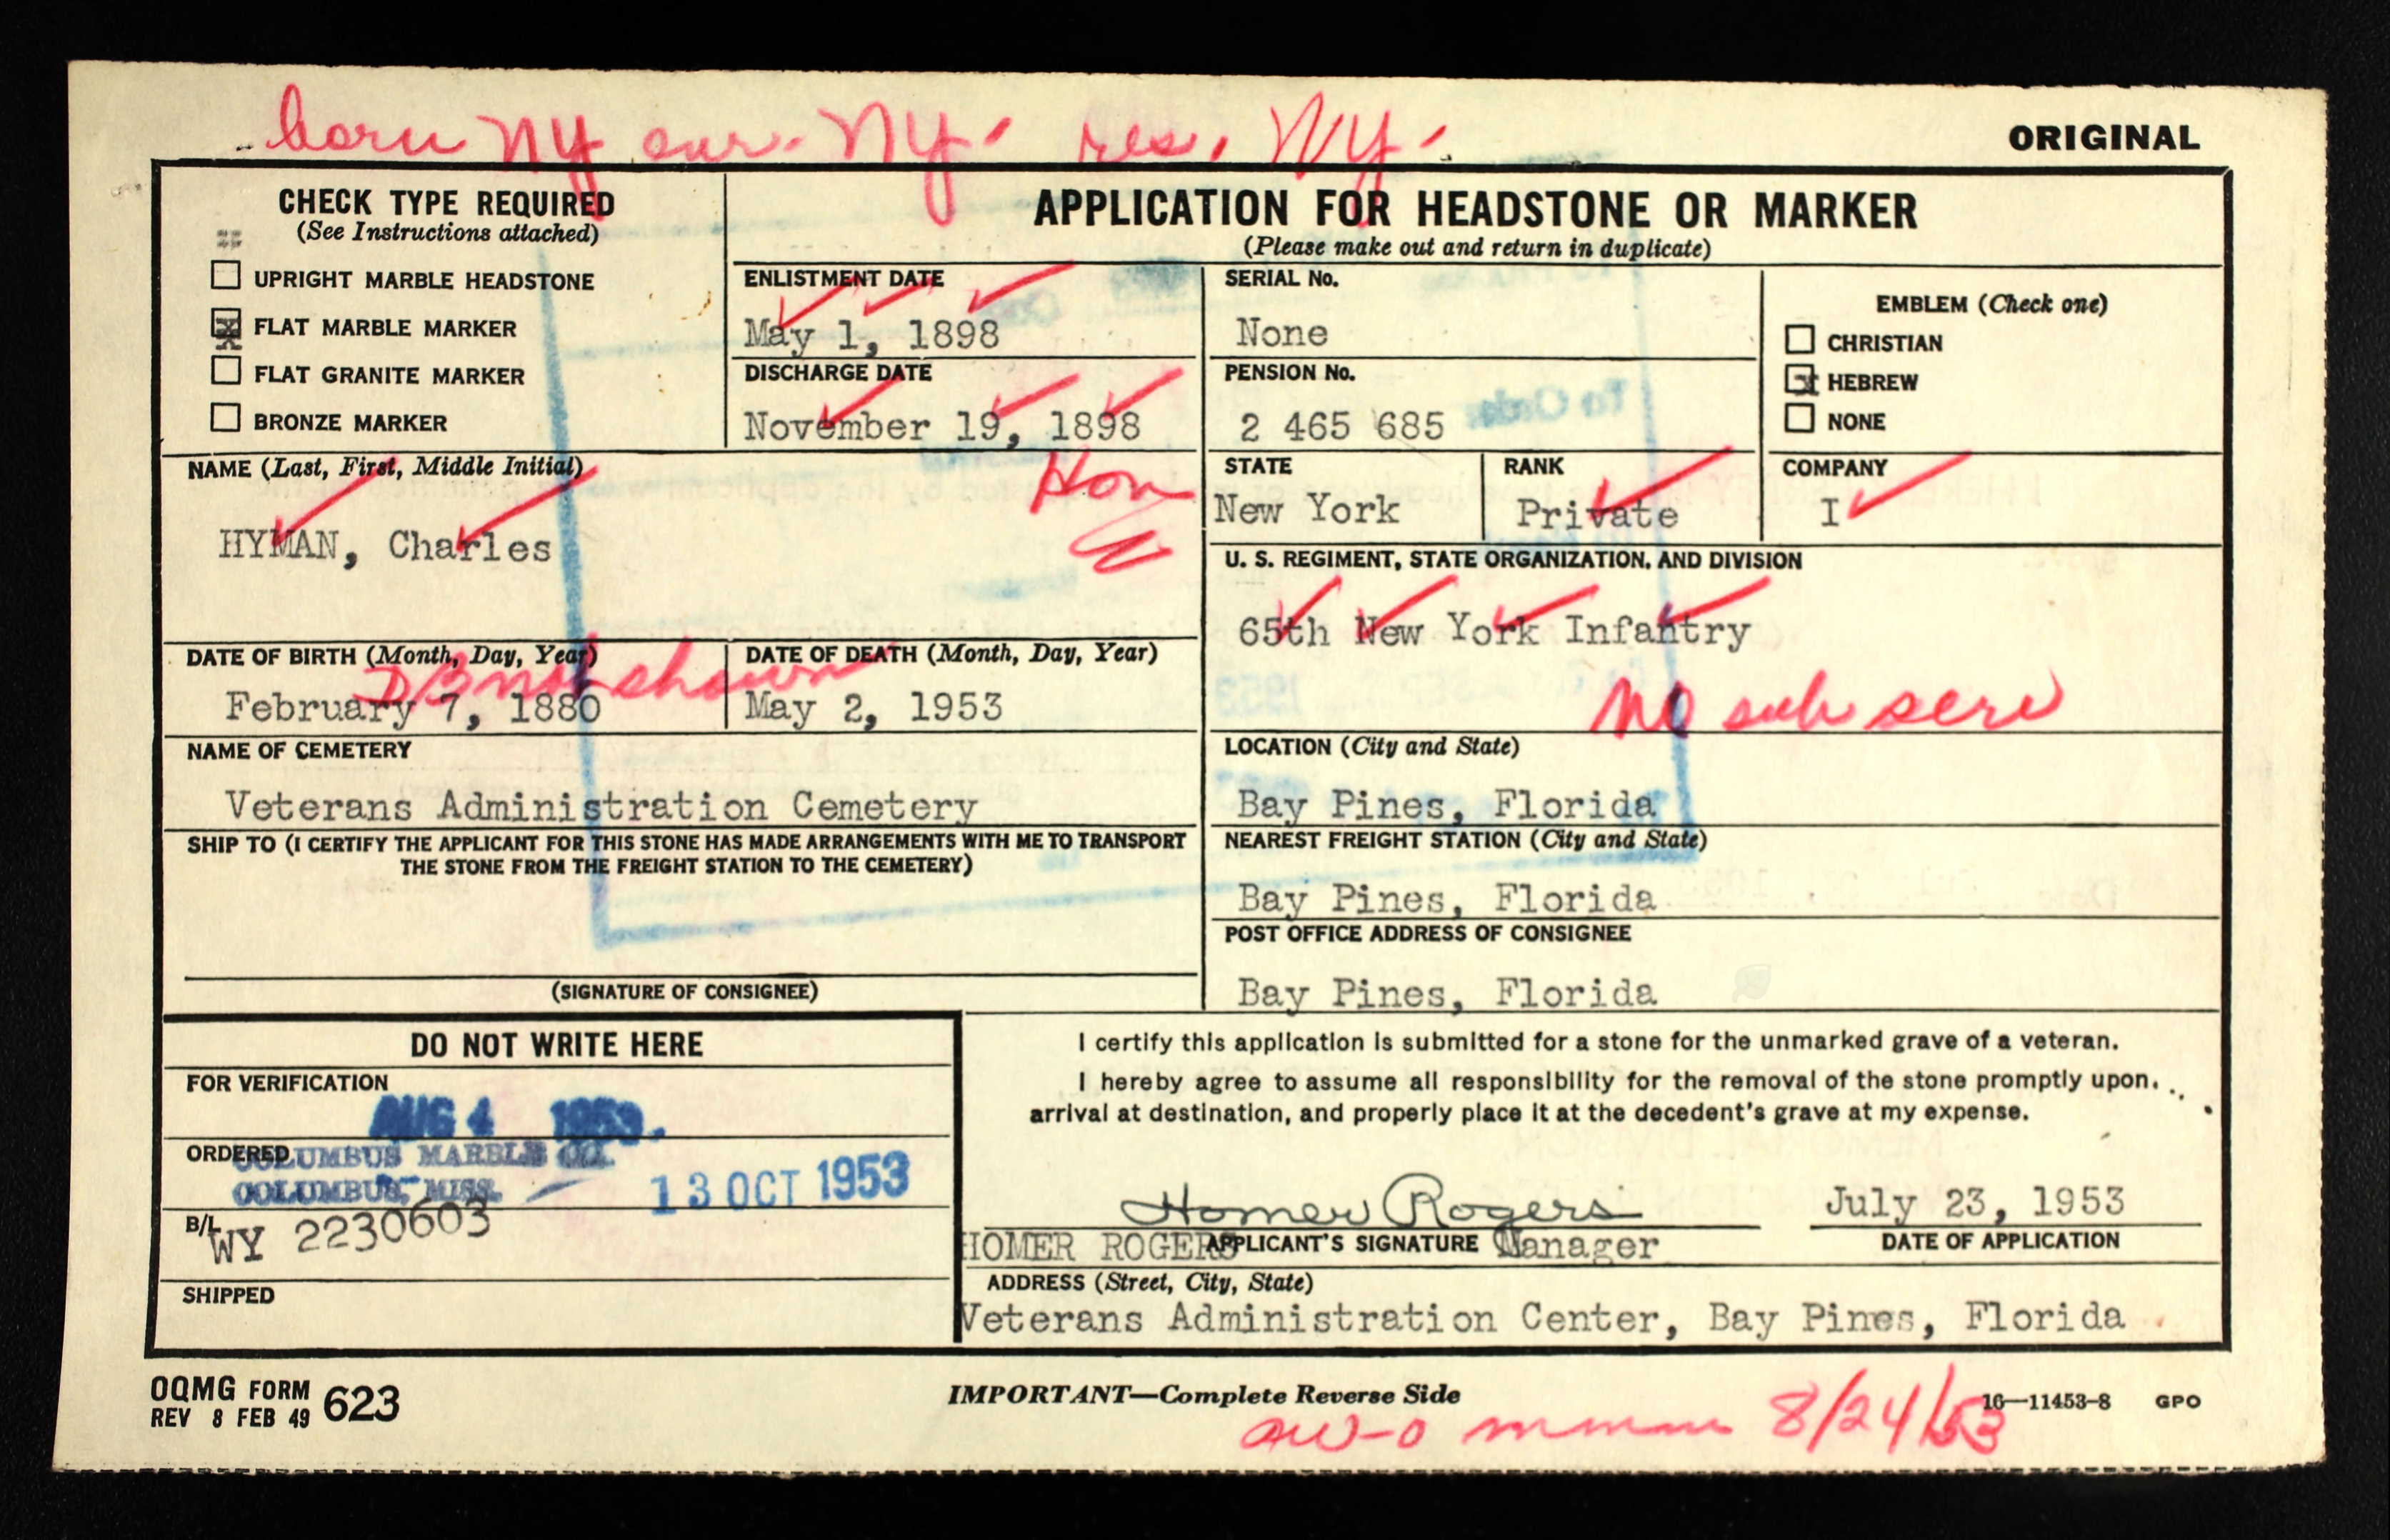 born NY enr. NY. res. NY.
ORIGINAL
CHECK TYPE REQUIRED
(See Instructions attached)
UPRIGHT MARBLE HEADSTONE
x FLAT MARBLE MARKER
FLAT GRANITE MARKER
BRONZE MARKER
APPLICATION FOR HEADSTONE OR MARKER
(Please make out and return in duplicate)
ENLISTMENT DATE
May 1, 1898
DISCHARGE DATE
November 19, 1898
SERIAL No.
None
PENSION No.
2 465 685
EMBLEM (Check one)
CHRISTIAN
x HEBREW
NONE
NAME (Last, First, Middle Initial)
HYMAN, Charles
Hon
STATE
New York
RANK
Private
COMPANY
I
U. S. REGIMENT, STATE ORGANIZATION, AND DIVISION
65th New York Infantry
No sub serv
DATE OF BIRTH (Month, Day, Year)
February 7, 1880
DB not shown
DATE OF DEATH (Month, Day, Year)
May 2, 1953
NAME OF CEMETERY
Veterans Administration Cemetery
LOCATION (City and State)
Bay Pines, Florida
SHIP TO (I CERTIFY THE APPLICANT FOR THIS STONE HAS MADE ARRANGEMENTS WITH ME TO TRANSPORT
THE STONE FROM THE FREIGHT STATION TO THE CEMETERY)
(SIGNATURE OF CONSIGNEE)
NEAREST FREIGHT STATION (City and State)
Bay Pines, Florida
POST OFFICE ADDRESS OF CONSIGNEE
Bay Pines, Florida
DO NOT WRITE HERE
FOR VERIFICATION
AUG 4 1953
ORDERED
COLUMBUS MARBLE CO.
COLUMBUS, MISS.
13 OCT 1953
B/L
WY 2230603
SHIPPED
I certify this application is submitted for a stone for the unmarked grave of a veteran.
I hereby agree to assume all responsibility for the removal of the stone promptly upon
arrival at destination, and properly place it at the decedent's grave at my expense.
Homer Rogers
HOMER ROGERS APPLICANT'S SIGNATURE Manager
July 23, 1953
DATE OF APPLICATION
ADDRESS (Street, City, State)
Veterans Administration Center, Bay Pines, Florida
OQMG FORM 623
REV 8 FEB 49
IMPORTANT—Complete Reverse Side
16—11453-8 GPO
8/24/53